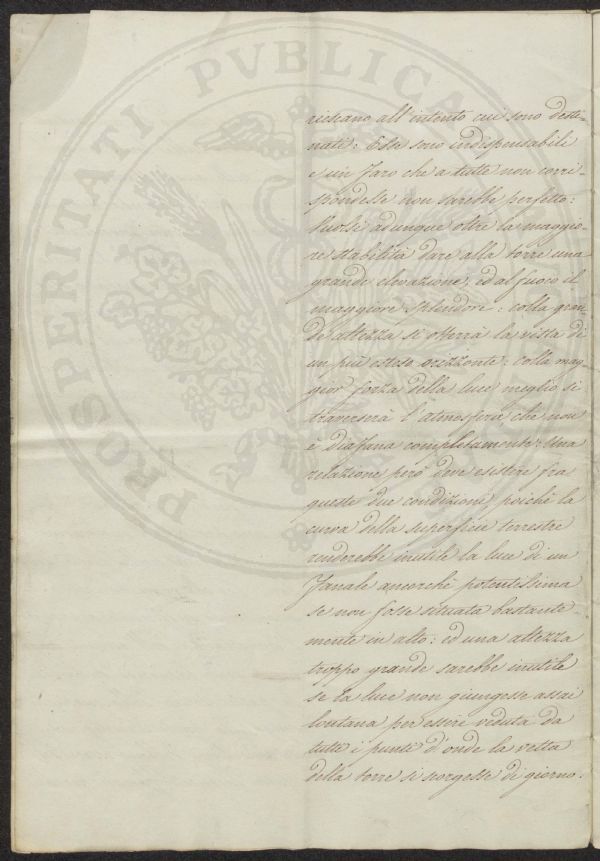 PROSPERITATI PVBLICA
riescano all'intento cui sono desti-
nati: Esse sono indispensabili
e un Faro che a tutte non corri-
spondesse non sarebbe perfetto:
Vuolsi adunque oltre la maggio-
re stabilità dare alla torre una
grande elevazione, ed al fuoco il
maggiore splendore: colla gran-
de altezza si otterrà la vista di
un più esteso orizzonte: colla mag-
gior forza della luce meglio si
traverserà l'atmosfera che non
è diafana completamente: Una
relazione però deve esistere fra
queste due condizioni, poichè la
curva della superficie terrestre
renderebbe inutile la luce di un
Fanale ancorchè potentissima
se non fosse situata bastante-
mente in alto: ed una altezza
troppo grande sarebbe inutile
se la luce non giungesse assai
lontana per essere veduta da
tutti i punti d'onde la vetta
della torre si scorgesse di giorno.